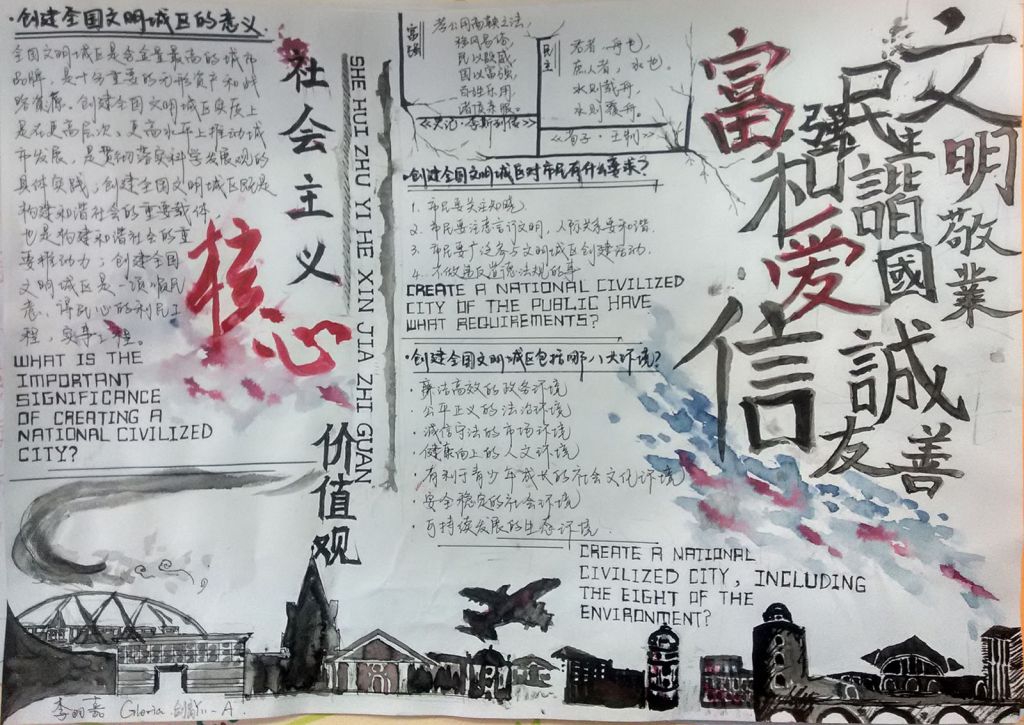 ·创建全国文明城区的意义
全国文明城区是含金量最高的城市
品牌，是十分重要的无形资产和战
略资源。创建全国文明城区实质上
是在更高层次、更高水平上推动城
市发展，是贯彻落实科学发展观的
具体实践；创建全国文明城区既是
构建和谐社会的重要载体，
也是构建和谐社会的重
要推动力；创建全国
文明城区是一项顺民
意、得民心的利民工
程，实事工程。
WHAT IS THE
IMPORTANT
SIGNIFICANCE
OF CREATING A
NATIONAL CIVILIZED
CITY?
社会主义
核心
价值观
SHE HUI ZHU YI HE XIN JIA ZHI GUAN
富强
孝公用商鞅之法，
移风易俗，
民以殷盛，
国以富强，
百姓乐用，
诸侯亲服。
《史记·李斯列传》
民主
君者，舟也，
庶人者，水也。
水则载舟，
水则覆舟。
《荀子·王制》
·创建全国文明城区对市民有什么要求？
1. 市民要关注知晓。
2. 市民要注意言行文明，人际关系要和谐.
3. 市民要广泛参与文明城区创建活动.
4. 不做违反道德法规的事
CREATE A NATIONAL CIVILIZED
CITY OF THE PUBLIC HAVE
WHAT REQUIREMENTS?
·创建全国文明城区包括哪八大环境？
·廉洁高效的政务环境
·公平正义的法治环境
·诚信守法的市场环境
·健康向上的人文环境
·有利于青少年成长的社会文化环境
·安全稳定的社会环境
·可持续发展的生态环境
CREATE A NATIONAL
CIVILIZED CITY, INCLUDING
THE EIGHT OF THE
ENVIRONMENT?
富强
民主
文明
和諧
愛國
敬業
誠信
友善
Gloria